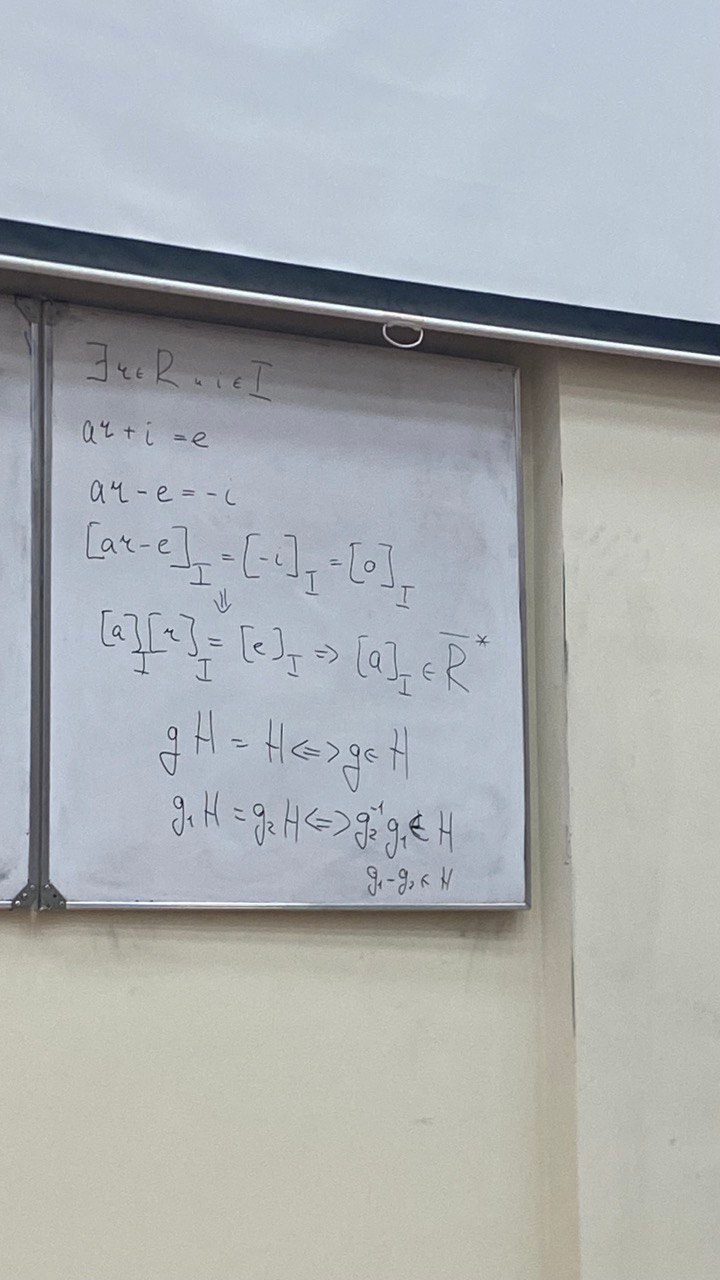 ∃ r ∈ R и i ∈ I
ar + i = e
ar - e = -i
[ar - e]_I = [-i]_I = [0]_I
⇓
[a]_I [r]_I = [e]_I ⇒ [a]_I ∈ R̅*
gH = H <=> g ∈ H
g₁H = g₂H <=> g₂⁻¹g₁ ∈ H
g₁ - g₂ ∈ H